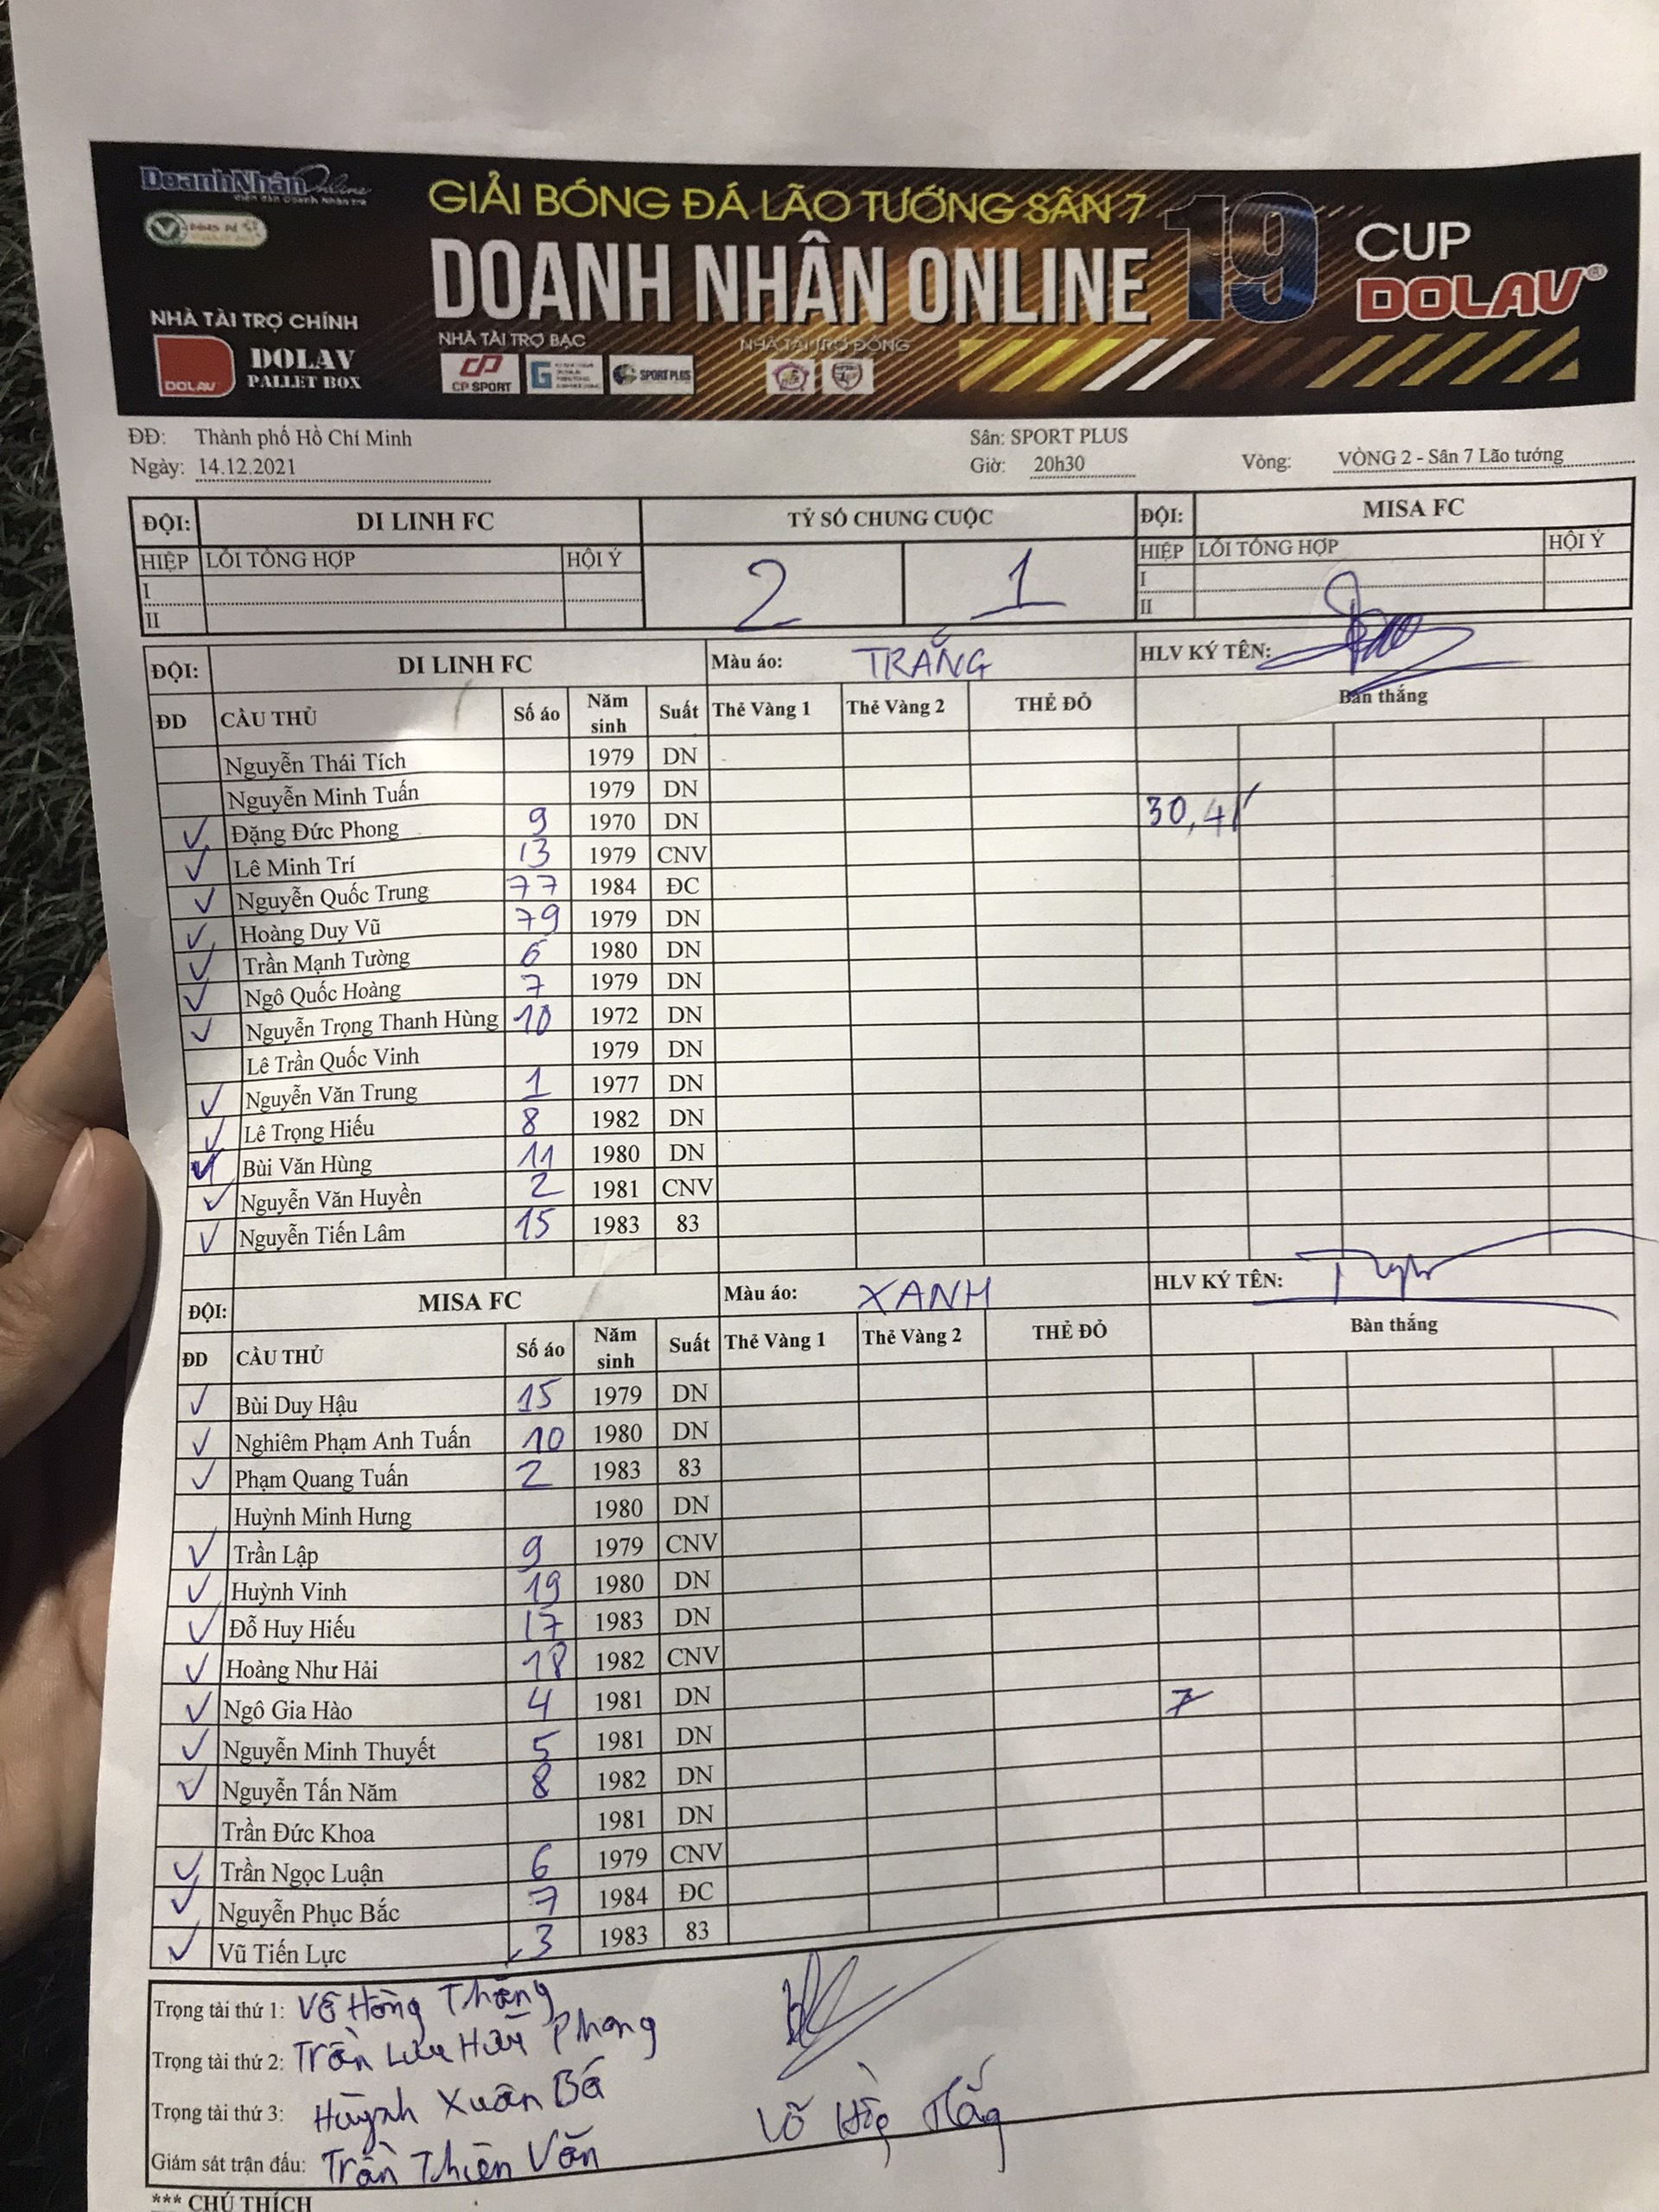 DoanhNhân Online
GIẢI BÓNG ĐÁ LÃO TƯỚNG SÂN 7
DOANH NHÂN ONLINE 19 CUP DOLAV®
NHÀ TÀI TRỢ CHÍNH
DOLAV
DOLAV PALLET BOX
NHÀ TÀI TRỢ BẠC
CP SPORT
SPORT PLUS
NHÀ TÀI TRỢ ĐỒNG
ĐĐ: Thành phố Hồ Chí Minh Sân: SPORT PLUS
Ngày: 14.12.2021 Giờ: 20h30 Vòng: VÒNG 2 - Sân 7 Lão tướng
ĐỘI: DI LINH FC TỶ SỐ CHUNG CUỘC ĐỘI: MISA FC
HIỆP LỖI TỔNG HỢP HỘI Ý 2 1 HIỆP LỖI TỔNG HỢP HỘI Ý
I I
II II
ĐỘI: DI LINH FC Màu áo: TRẮNG HLV KÝ TÊN:
ĐD CẦU THỦ Số áo Năm sinh Suất Thẻ Vàng 1 Thẻ Vàng 2 THẺ ĐỎ Bàn thắng
Nguyễn Thái Tích 1979 DN
Nguyễn Minh Tuấn 1979 DN
✓ Đặng Đức Phong 9 1970 DN
✓ Lê Minh Trí 13 1979 CNV
✓ Nguyễn Quốc Trung 77 1984 ĐC
✓ Hoàng Duy Vũ 79 1979 DN
✓ Trần Mạnh Tường 6 1980 DN
✓ Ngô Quốc Hoàng 7 1979 DN
✓ Nguyễn Trọng Thanh Hùng 10 1972 DN
Lê Trần Quốc Vinh 1979 DN
✓ Nguyễn Văn Trung 1 1977 DN
✓ Lê Trọng Hiếu 8 1982 DN
✓ Bùi Văn Hùng 11 1980 DN
✓ Nguyễn Văn Huyền 2 1981 CNV
✓ Nguyễn Tiến Lâm 15 1983 83
ĐỘI: MISA FC Màu áo: XANH HLV KÝ TÊN:
ĐD CẦU THỦ Số áo Năm sinh Suất Thẻ Vàng 1 Thẻ Vàng 2 THẺ ĐỎ Bàn thắng
✓ Bùi Duy Hậu 15 1979 DN
✓ Nghiêm Phạm Anh Tuấn 10 1980 DN
✓ Phạm Quang Tuấn 2 1983 83
Huỳnh Minh Hưng 1980 DN
✓ Trần Lập 9 1979 CNV
✓ Huỳnh Vinh 19 1980 DN
✓ Đỗ Huy Hiếu 17 1983 DN
✓ Hoàng Như Hải 18 1982 CNV
✓ Ngô Gia Hào 4 1981 DN 7
✓ Nguyễn Minh Thuyết 5 1981 DN
✓ Nguyễn Tấn Năm 8 1982 DN
Trần Đức Khoa 1981 DN
✓ Trần Ngọc Luận 6 1979 CNV
✓ Nguyễn Phục Bắc 7 1984 ĐC
✓ Vũ Tiến Lực 3 1983 83
Trọng tài thứ 1: Võ Hồng Thắng
Trọng tài thứ 2: Trần Lưu Hữu Phong
Trọng tài thứ 3: Huỳnh Xuân Bá
Giám sát trận đấu: Trần Thiện Văn
*** CHÚ THÍCH